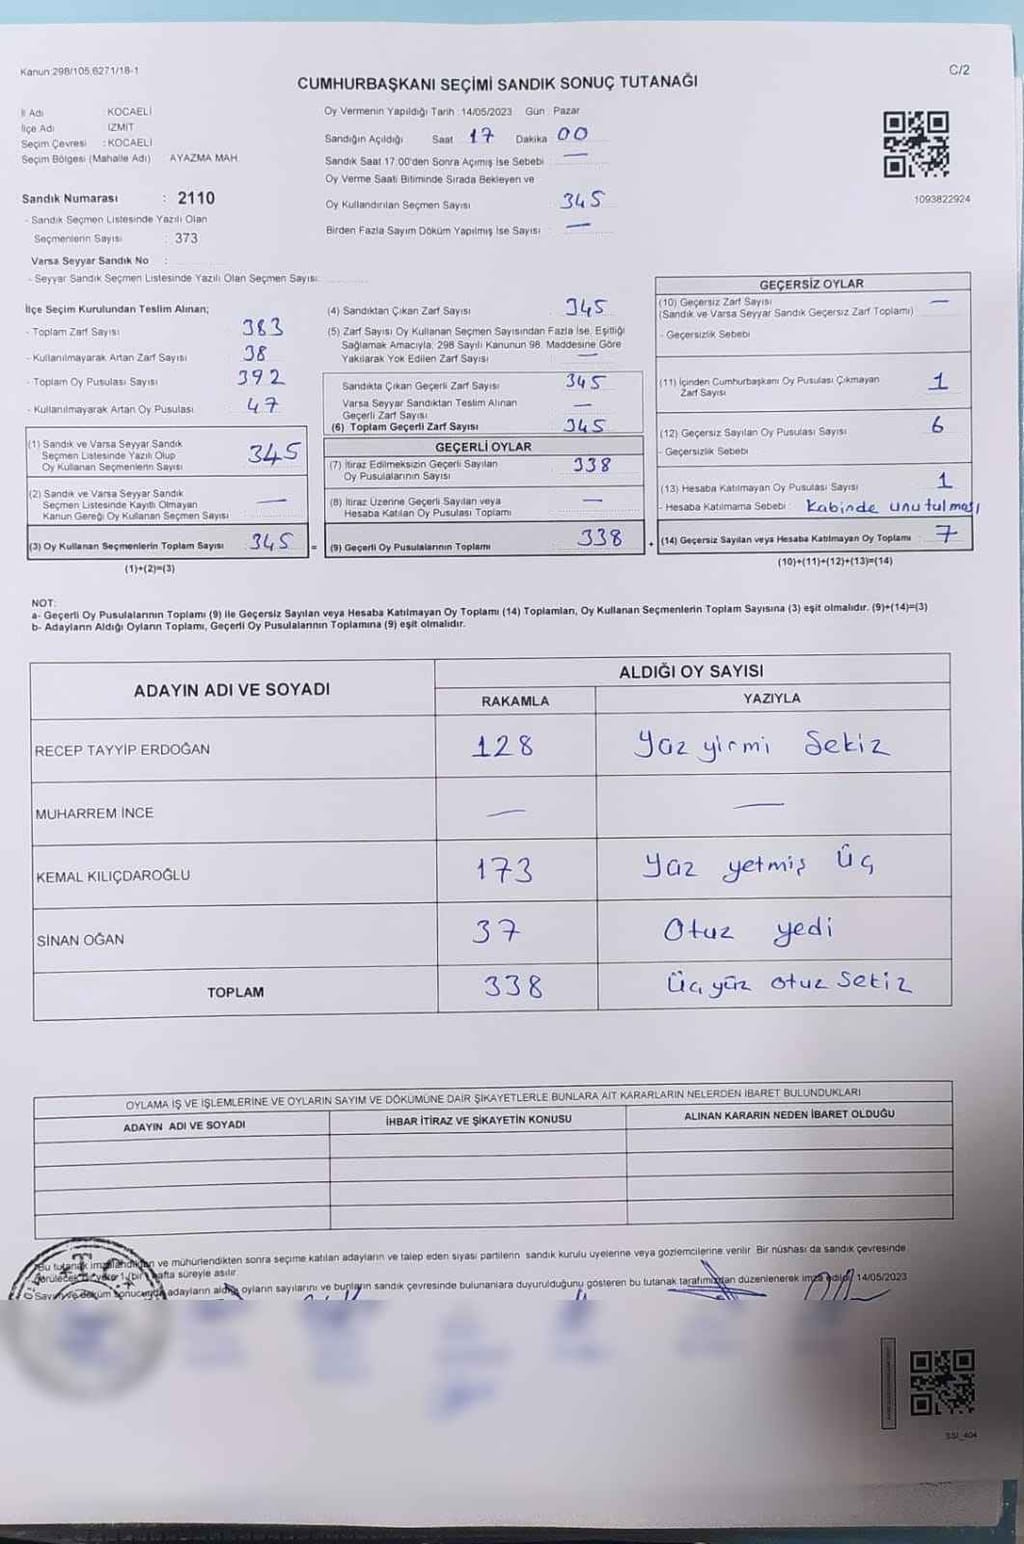 Kanun:298/105,6271/18-1
C/2
CUMHURBAŞKANI SEÇİMİ SANDIK SONUÇ TUTANAĞI
İl Adı KOCAELİ
İlçe Adı İZMİT
Seçim Çevresi : KOCAELİ
Seçim Bölgesi (Mahalle Adı) AYAZMA MAH.
Sandık Numarası : 2110
- Sandık Seçmen Listesinde Yazılı Olan
Seçmenlerin Sayısı : 373
Varsa Seyyar Sandık No :
- Seyyar Sandık Seçmen Listesinde Yazılı Olan Seçmen Sayısı:
Oy Vermenin Yapıldığı Tarih : 14/05/2023 Gün : Pazar
Sandığın Açıldığı Saat 17 Dakika 00
Sandık Saat 17.00'den Sonra Açımış İse Sebebi —
Oy Verme Saati Bitiminde Sırada Bekleyen ve
Oy Kullandırılan Seçmen Sayısı 345
Birden Fazla Sayım Döküm Yapılmış İse Sayısı —
1093822924
İlçe Seçim Kurulundan Teslim Alınan;
- Toplam Zarf Sayısı 383
- Kullanılmayarak Artan Zarf Sayısı 38
- Toplam Oy Pusulası Sayısı 392
- Kullanılmayarak Artan Oy Pusulası 47
(1) Sandık ve Varsa Seyyar Sandık
Seçmen Listesinde Yazılı Olup
Oy Kullanan Seçmenlerin Sayısı 345
(2) Sandık ve Varsa Seyyar Sandık
Seçmen Listesinde Kayıtlı Olmayan
Kanun Gereği Oy Kullanan Seçmen Sayısı —
(3) Oy Kullanan Seçmenlerin Toplam Sayısı 345 =
(1)+(2)=(3)
(4) Sandıktan Çıkan Zarf Sayısı 345
(5) Zarf Sayısı Oy Kullanan Seçmen Sayısından Fazla İse, Eşitliği
Sağlamak Amacıyla, 298 Sayılı Kanunun 98. Maddesine Göre
Yakılarak Yok Edilen Zarf Sayısı —
Sandıkta Çıkan Geçerli Zarf Sayısı 345
Varsa Seyyar Sandıktan Teslim Alınan
Geçerli Zarf Sayısı —
(6) Toplam Geçerli Zarf Sayısı 345
GEÇERLİ OYLAR
(7) İtiraz Edilmeksizin Geçerli Sayılan
Oy Pusulalarının Sayısı 338
(8) İtiraz Üzerine Geçerli Sayılan veya
Hesaba Katılan Oy Pusulası Toplamı —
(9) Geçerli Oy Pusulalarının Toplamı 338 +
GEÇERSİZ OYLAR
(10) Geçersiz Zarf Sayısı
(Sandık ve Varsa Seyyar Sandık Geçersiz Zarf Toplamı) —
- Geçersizlik Sebebi
(11) İçinden Cumhurbaşkanı Oy Pusulası Çıkmayan
Zarf Sayısı 1
(12) Geçersiz Sayılan Oy Pusulası Sayısı 6
- Geçersizlik Sebebi
(13) Hesaba Katılmayan Oy Pusulası Sayısı 1
- Hesaba Katılmama Sebebi Kabinde unutulması
(14) Geçersiz Sayılan veya Hesaba Katılmayan Oy Toplamı 7
(10)+(11)+(12)+(13)=(14)
NOT:
a- Geçerli Oy Pusulalarının Toplamı (9) ile Geçersiz Sayılan veya Hesaba Katılmayan Oy Toplamı (14) Toplamları, Oy Kullanan Seçmenlerin Toplam Sayısına (3) eşit olmalıdır. (9)+(14)=(3)
b- Adayların Aldığı Oyların Toplamı, Geçerli Oy Pusulalarının Toplamına (9) eşit olmalıdır.
ADAYIN ADI VE SOYADI
ALDIĞI OY SAYISI
RAKAMLA YAZIYLA
RECEP TAYYİP ERDOĞAN 128 Yüz yirmi Sekiz
MUHARREM İNCE — —
KEMAL KILIÇDAROĞLU 173 Yüz yetmiş Üç
SİNAN OĞAN 37 Otuz yedi
TOPLAM 338 Üçyüz otuz Sekiz
OYLAMA İŞ VE İŞLEMLERİNE VE OYLARIN SAYIM VE DÖKÜMÜNE DAİR ŞİKAYETLERLE BUNLARA AİT KARARLARIN NELERDEN İBARET BULUNDUKLARI
ADAYIN ADI VE SOYADI İHBAR İTİRAZ VE ŞİKAYETİN KONUSU ALINAN KARARIN NEDEN İBARET OLDUĞU
Bu tutanak imzalandıktan ve mühürlendikten sonra seçime katılan adayların ve talep eden siyasi partilerin sandık kurulu üyelerine veya gözlemcilerine verilir. Bir nüshası da sandık çevresinde
görülecek bir yere 1 (bir) hafta süreyle asılır.
Sayım ve döküm sonucunda adayların aldığı oyların sayılarını ve bunların sandık çevresinde bulunanlara duyurulduğunu gösteren bu tutanak tarafımızdan düzenlenerek imza edildi. 14/05/2023
T.C.
SSI_404